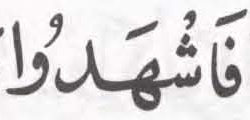 فَاشْهَدُوا